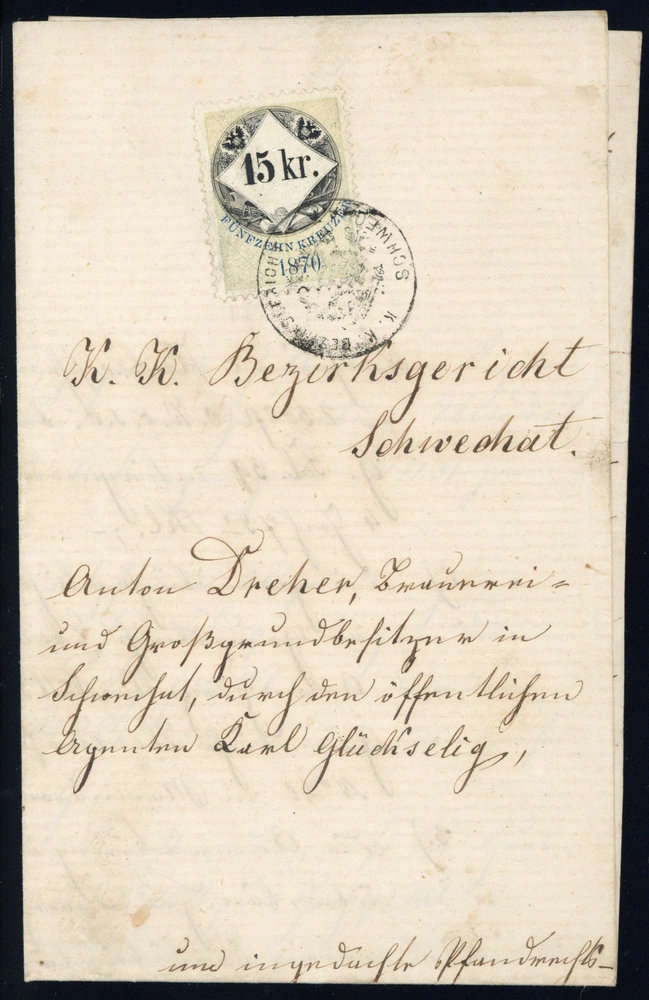 15 kr.
FÜNFZEHN KREUZER
1870
K. K. BEZIRKSGERICHT SCHWECHAT
K. K. Bezirksgericht
Schwechat.
Anton Dreher, Brauerei=
und Großgrundbesitzer in
Schwechat, durch den öffentlichen
Agenten Karl Glückselig,
um ingedachte Pfandrechts-